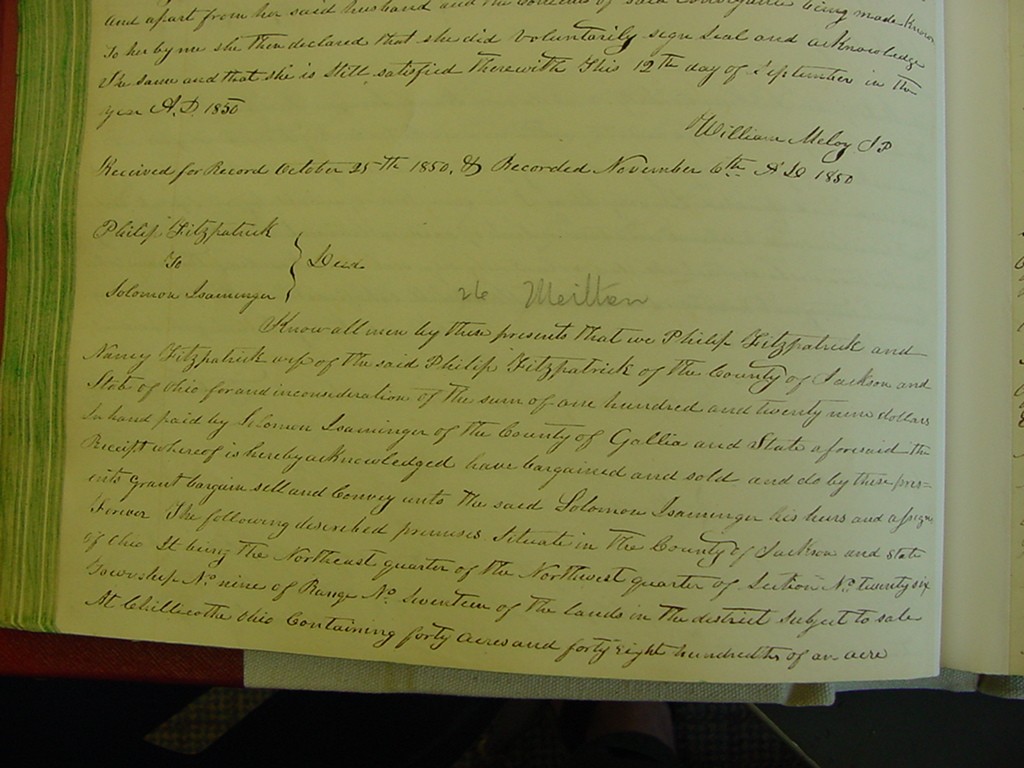 and apart from her said husband and the contents of said conveyance being made known
To her by me she then declared that she did voluntarily sign seal and acknowledge
The same and that she is still satisfied therewith This 12th day of September in the
year A.D. 1850
William Meloy J P
Received for Record October 25th 1850, & Recorded November 6th A D 1850
Philip Fitzpatrick
To } Deed
Solomon Isaminger
26 Meilton
Know all men by these presents that we Philip Fitzpatrick and
Nancy Fitzpatrick wife of the said Philip Fitzpatrick of the County of Jackson and
State of Ohio for and in consideration of the sum of one hundred and twenty nine dollars
In hand paid by Solomon Isaminger of the County of Gallia and State aforesaid the
Receipt whereof is hereby acknowledged have bargained and sold and do by these pres=
ents grant bargain sell and Convey unto the said Solomon Isaminger his heirs and assigns
Forever The following described premises Situate in the County of Jackson and State
of Ohio It being the Northeast quarter of the Northwest quarter of Section No. twenty six
Township No. nine of Range No. Seventeen of the lands in the district Subject to sale
At Chillicothe Ohio Containing forty acres and forty Eight hundredths of an acre